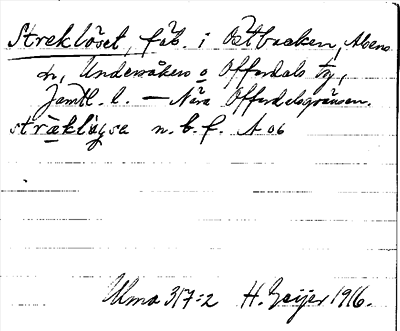 Streklöset, fäb. i Östbacken, Alsens
sn, Undersåkers o Offerdals tg,
Jämtl. l. — Nära Offerdalsgränsen.
sträklüysa n. b. f. A 06
Ulma 317:2 H. Geijer 1916.